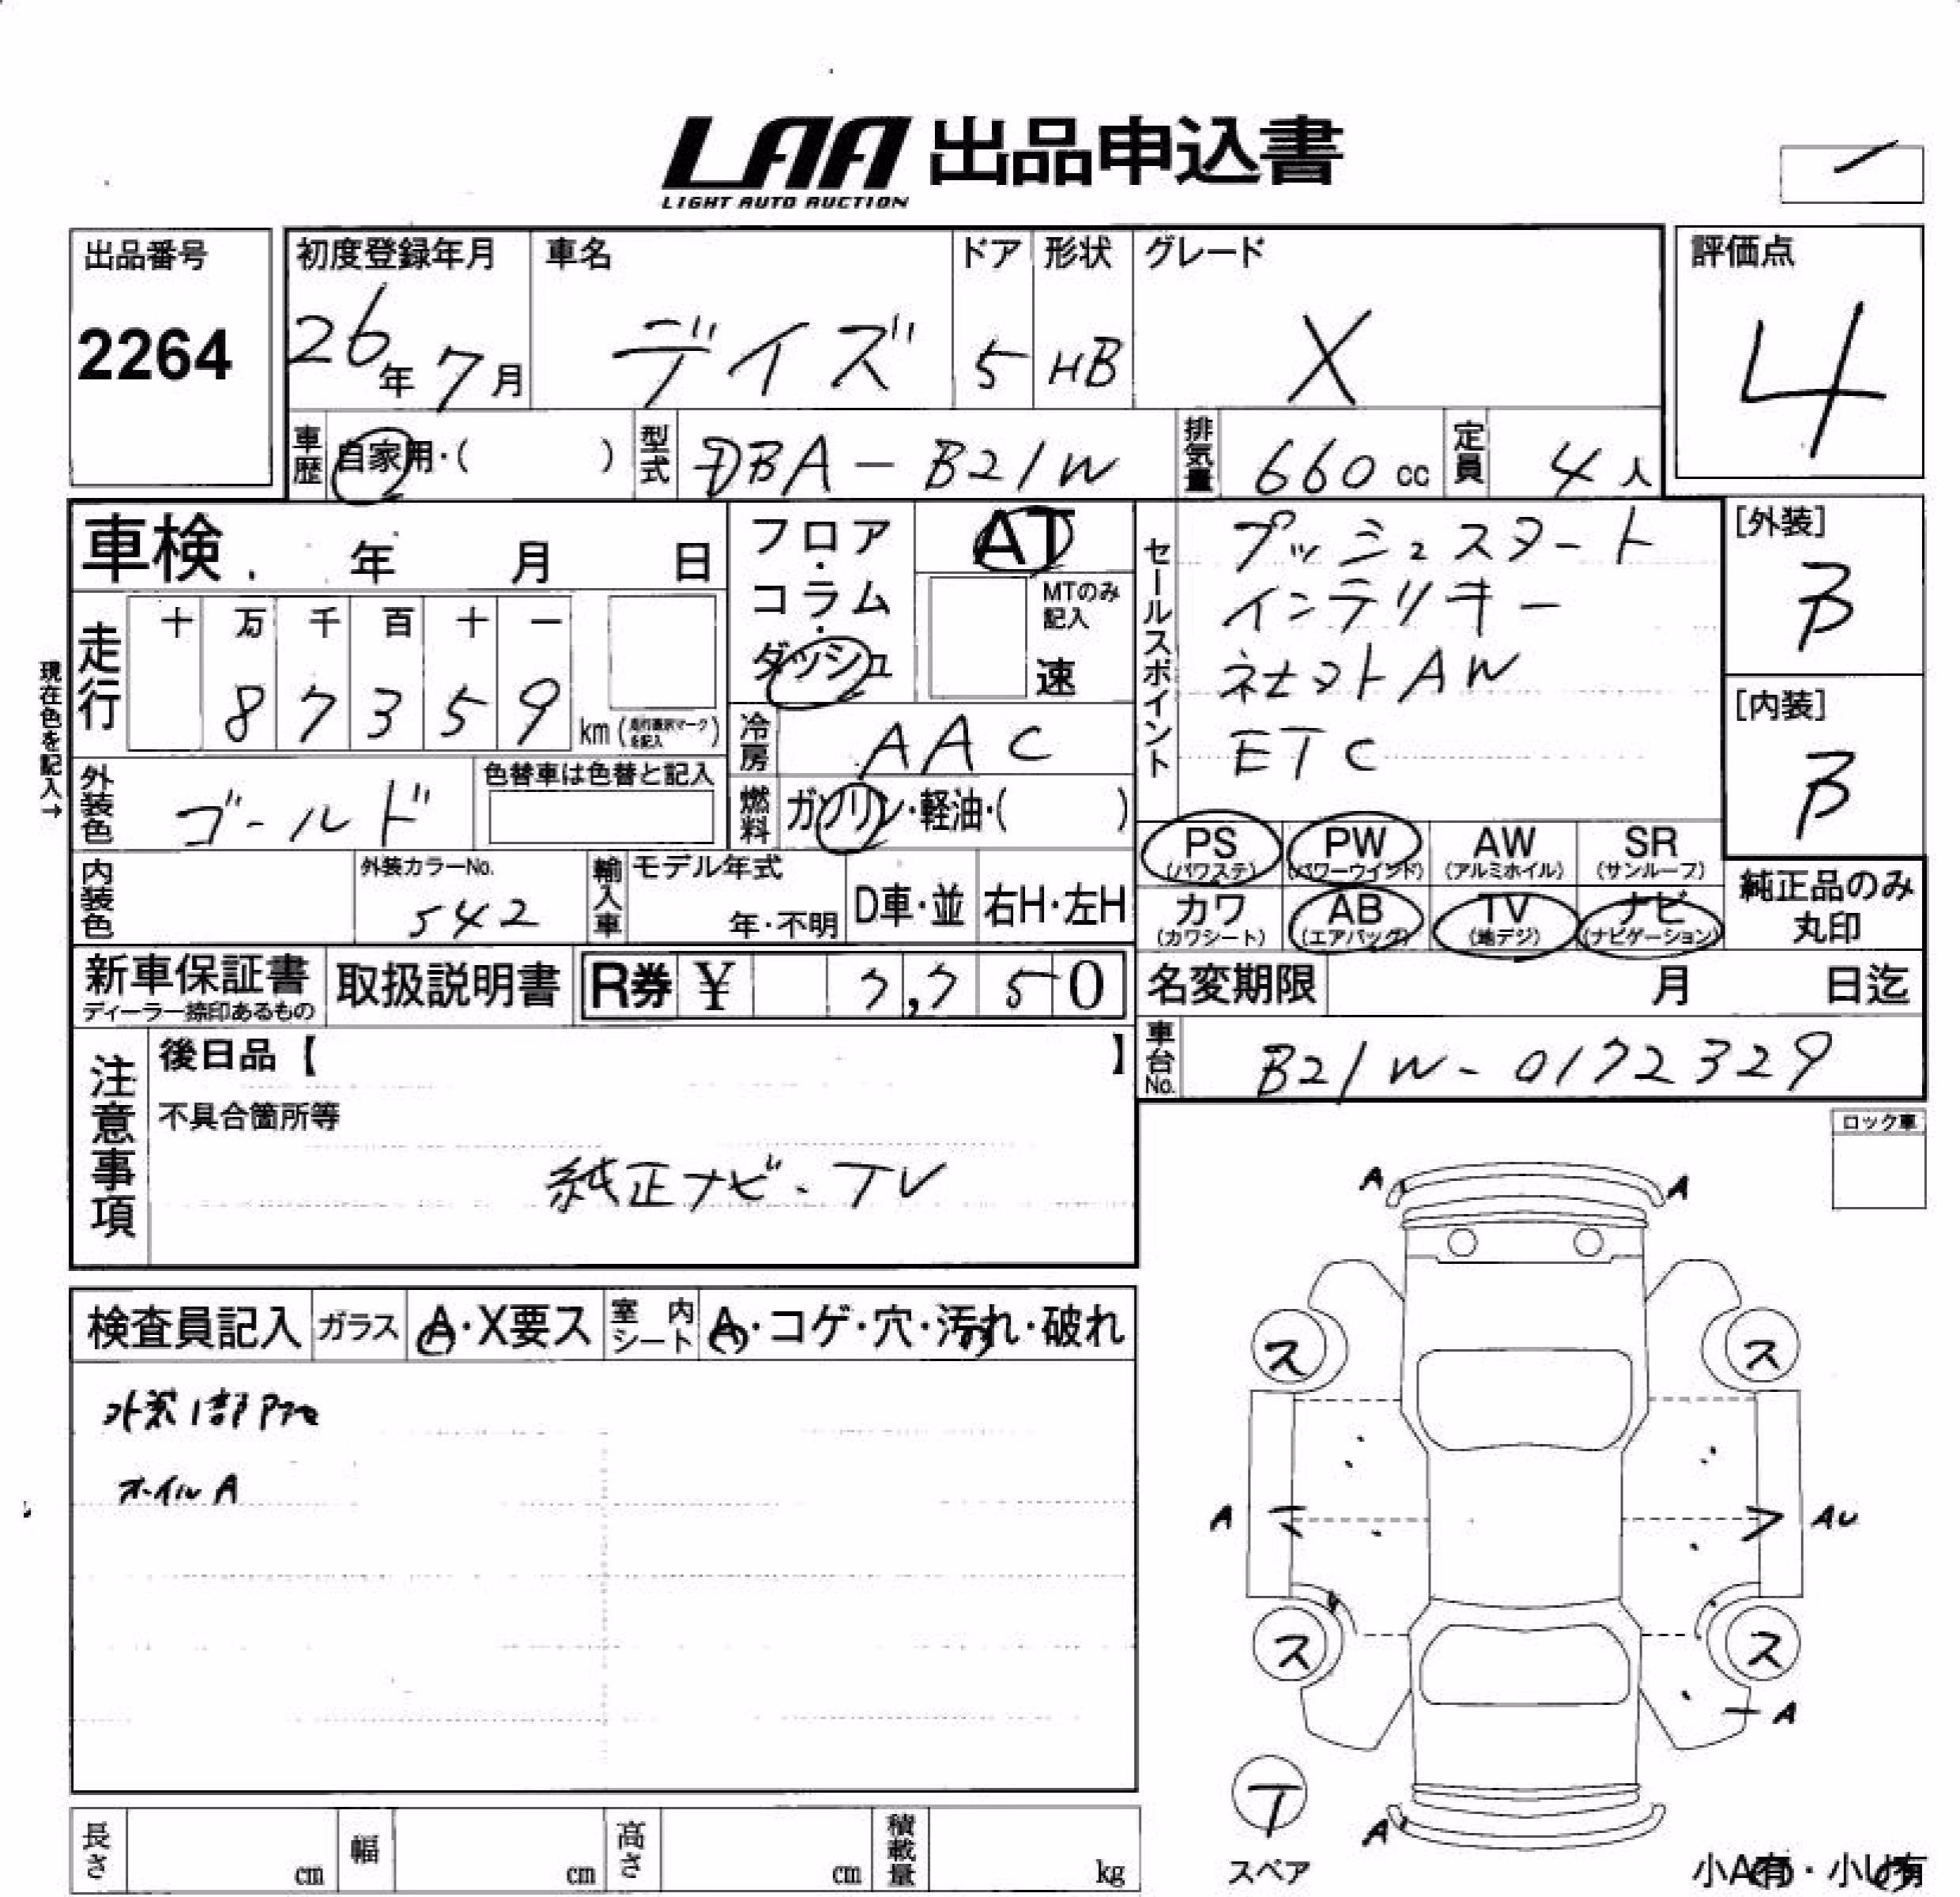 LAA 出品申込書
LIGHT AUTO AUCTION
出品番号
2264
初度登録年月
26年 7月
車名
デイズ
ドア
5
形状
HB
グレード
X
評価点
4
車歴
自家用・( )
型式
DBA - B21W
排気量
660 cc
定員
4人
車検 年 月 日
フロア・コラム・ダッシュ
AT
MTのみ記入
速
セールスポイント
プッシュスタート
インテリキー
ネセストAW
ETC
[外装]
B
[内装]
B
現在色を記入→
走行
十 万 千 百 十 一
8 7 3 5 9 km
冷房
AAC
外装色
ゴールド
色替車は色替と記入
燃料
ガソリン・軽油・( )
PS (パワステ)
PW (パワーウインド)
AW (アルミホイル)
SR (サンルーフ)
カワ (カワシート)
AB (エアバッグ)
TV (地デジ)
ナビ (ナビゲーション)
純正品のみ丸印
内装色
外装カラーNo.
542
輸入車
モデル年式
年・不明
D車・並
右H・左H
新車保証書
ディーラー捺印あるもの
取扱説明書
R券 ¥ 7,750
名変期限 月 日迄
車台No.
B21W-0172329
注意事項
後日品【 】
不具合箇所等
純正ナビ・TV
ロック車
検査員記入
ガラス
A・X要ス
室内シート
A・コゲ・穴・汚れ・破れ
オイルA
A A
ス ス
A AU
ス ス
A
T
スペア
A
小A有・小U有
長さ cm
幅 cm
高さ cm
積載量 kg